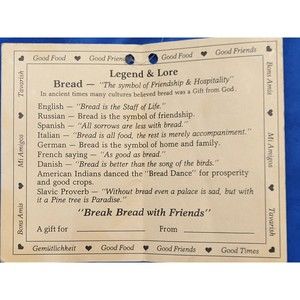 Good Food ♥ Good Friends
Legend & Lore
Bread — "The symbol of Friendship & Hospitality"
In ancient times many cultures believed bread was a Gift from God.
English — "Bread is the Staff of Life."
Russian — Bread is the symbol of friendship.
Spanish — "All sorrows are less with bread."
Italian — "Bread is all food, the rest is merely accompaniment."
German — Bread is the symbol of home and family.
French saying — "As good as bread."
Danish — "Bread is better than the song of the birds."
American Indians danced the "Bread Dance" for prosperity
and good crops.
Slavic Proverb — "Without bread even a palace is sad, but with
it a Pine tree is Paradise."
"Break Bread with Friends"
A gift for From
Gemütlichkeit ♥ Good Food ♥ Good Friends ♥ Good Times
Tavarish ♥ Mi Amigos ♥ Bons Amis
Bons Amis ♥ Mi Amigos ♥ Tavarish